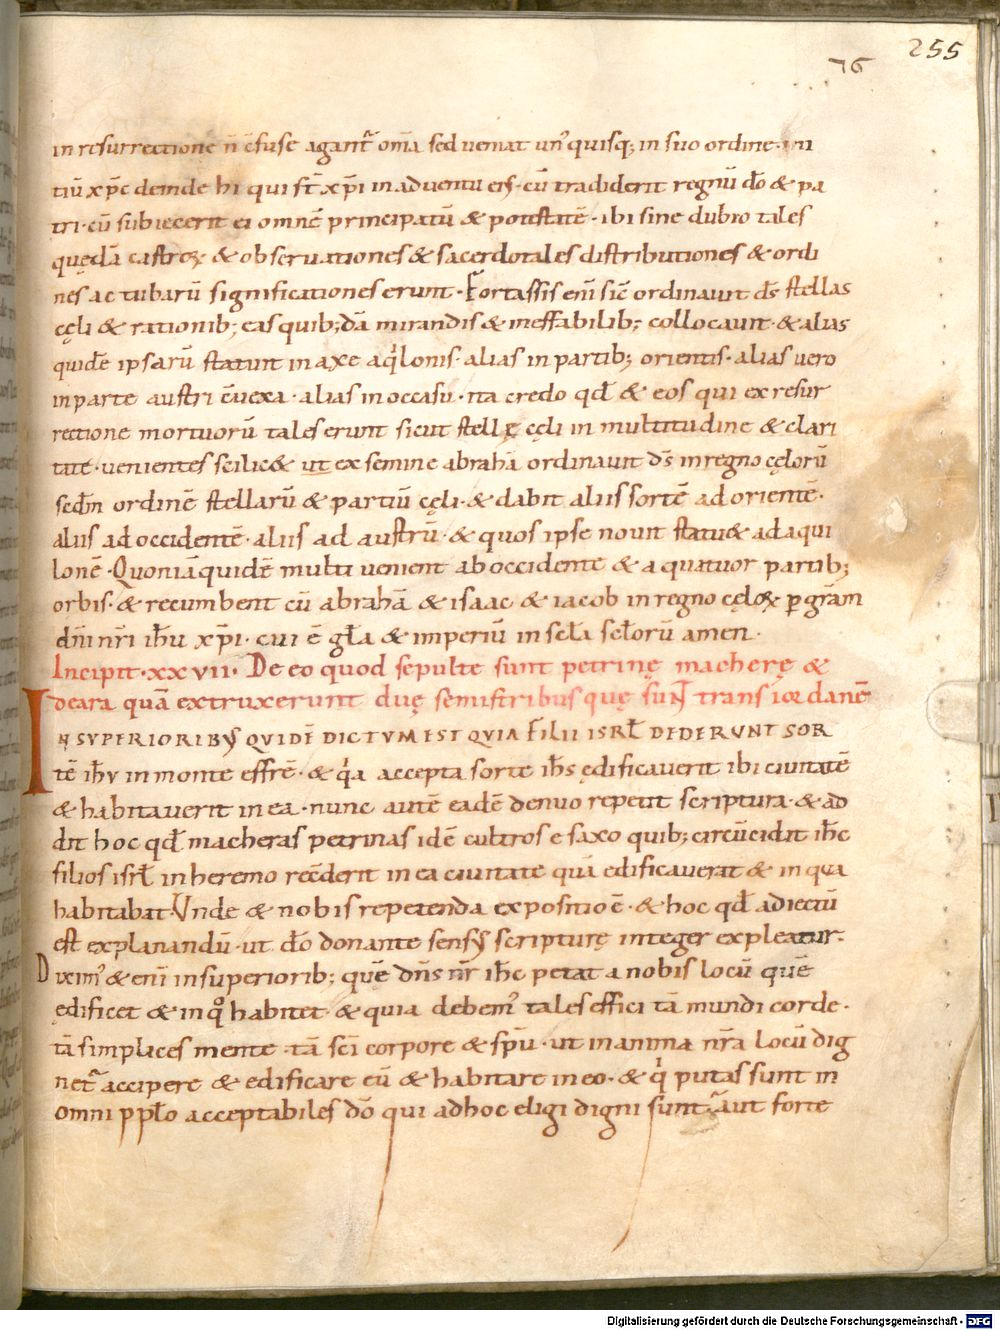 255
76
in resurrectione n̄ c̄fuse agant᷑ om̄a sed veniat un᷒quisq; in suo ordine. ini
tiū xp̄c deinde hi qui s̄t xp̄i in adventu ei᷒. cū tradiderit regnū dō & pa
tri. cū subiecerit ei omnē principatū & potestatē. ibi sine dubio tales
quędā castroꝝ & observationes & sacerdotales distributiones & ordi
nes ac tubarū significationes erunt. Fortassis eni᷒ sic̄ ordinavit ds̄ stellas
cęli & rationib; eas quib;dā mirandis & ineffabilib; collocavit. & alias
quidē ipsarū statuit in axe aqͥlonis. alias in partib; orientis. alias vero
in parte austri c̄uexa. alias in occasu. ita credo qđ & eos qui ex resur
rectione mortuorū tales erunt sicut stellę cęli in multitudine & clari
tate. venientes scilic& ut ex semine abrahā ordinavit ds̄ in regno cęlorū
secđm ordinē stellarū & partiū cęli. & dabit aliis sortē ad orientē.
aliis ad occidentē. aliis ad austrū. & quos ipse novit statu& ad aqui
lonē. Quoniā quidē multi venient ab occidente & a quatuor partib;
orbis. & recumbent cū abrahā & isaac & iacob in regno cęloꝝ ꝑ gram̄
dn̄i nr̄i ih̄u xp̄i. cui ē gła & imperiū in scła scłorū amen.
Incipit. xxvii. De eo quod sepulte sunt petrinę macherę &
de ara quā extruxerunt duę semistribus quę sunt trans iordanē
IN SVPERIORIBVS QVIDĒ DICTVM EST QVIA FILII ISRŁ DEDERVNT SOR
tē ih̄v in monte effrē. & qͥa accepta sorte ih̄s ędificaverit ibi civitatē
& habitaverit in ea. nunc autē eadē denuo repetit scriptura. & ad
dit hoc qđ macheras petrinas idē cultros e saxo quib; circūcidit ih̄c
filios isrł in heremo rec̄derit in ea civitate quā edificaverat & in qua
habitabat. Unde & nobis repetenda expositio ē. & hoc qđ adiectū
est explanandū. ut dō donante sensus scripturę integer expleatur.
Dixim᷒ & eni᷒ in superiorib; quē dn̄s nr̄ ih̄c petat a nobis locū quē
ędificet & in qͦ habitet. & quia debem᷒ tales effici tā mundi corde.
tā simplices mente. tā sc̄i corpore & sp̄u. ut in anima nr̄a locū dig
net᷑ accipere & edificare eū & habitare in eo. & qͥ putas sunt in
omni ppło acceptabiles dō qui ad hoc eligi digni sunt. aut forte
Digitalisierung gefördert durch die Deutsche Forschungsgemeinschaft - DFG